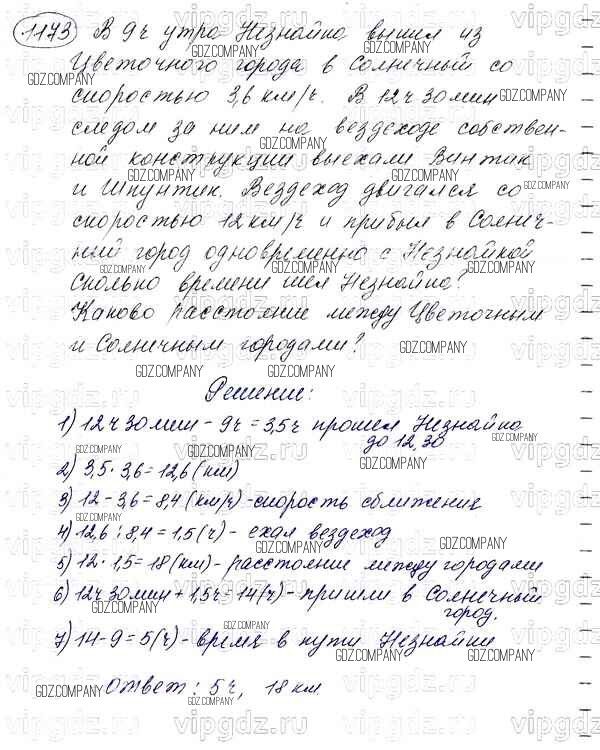 1173 В 9ч утра Незнайка вышел из
Цветочного города в Солнечный со
скоростью 3,6 км/ч. В 12ч 30мин
следом за ним на вездеходе собствен-
ной конструкции выехали Винтик
и Шпунтик. Вездеход двигался со
скоростью 12 км/ч и прибыл в Солнеч-
ный город одновременно с Незнайкой
Сколько времени шел Незнайка?
Каково расстояние между Цветочным
и Солнечным городами?
Решение:
1) 12ч 30мин - 9ч = 3,5ч прошел Незнайка
до 12,30
2) 3,5 · 3,6 = 12,6 (км)
3) 12 - 3,6 = 8,4 (км/ч) - скорость сближения
4) 12,6 : 8,4 = 1,5 (ч) - ехал вездеход
5) 12 · 1,5 = 18 (км) - расстояние между городами
6) 12ч 30мин + 1,5ч = 14 (ч) - пришли в Солнечный
город.
7) 14 - 9 = 5 (ч) - время в пути Незнайки
Ответ: 5ч, 18 км